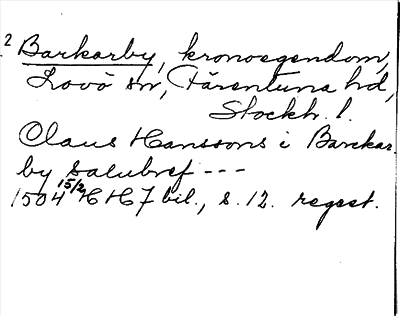 2 Barkarby, kronoegendom,
Lovö sn, Färentuna hd,
Stockh. l.
Claus Hanssons i Barckar
by salubref ---
1504 15/2 HH7 bil., s. 12. regest.